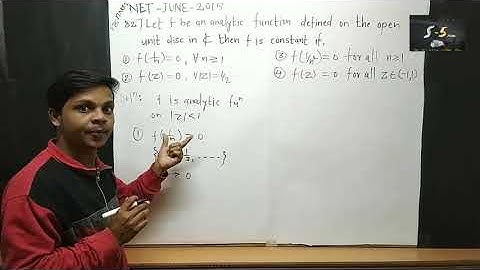 NET-JUNE-2015
82] Let f be an analytic function defined on the open
unit disc in ℂ then f is constant if,
① f(1/n)=0, ∀ n≥1
③ f(1/n²)=0 for all n≥1
② f(z)=0, ∀|z|=1/2
④ f(z)=0 for all z∈(-1,1)
f is analytic fnⁿ
on |z|<1
① f( = 0
0
S-S